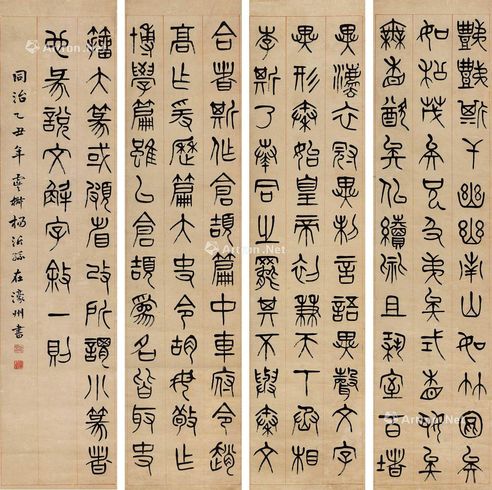 豑豑斯干幽幽南山如竹苞矣
如松茂矣兄及弟矣式相好矣
無相猶矣似續妣祖築室百堵
異灋衣冠異制言語異聲文字
異形秦始皇帝初兼天下丞相
李斯乃奏同之罷其不與秦文
合者斯作倉頡篇中車府令趙
高作爰歷篇大史令胡毋敬作
博學篇雖以倉頡為名皆取史
籀大篆或頗省改所謂小篆者
也彔說文解字敘一則
同治乙丑年楊沂孫在濠州書
Artron.Net
Artron.Net
Artron.Net
Artron.Net